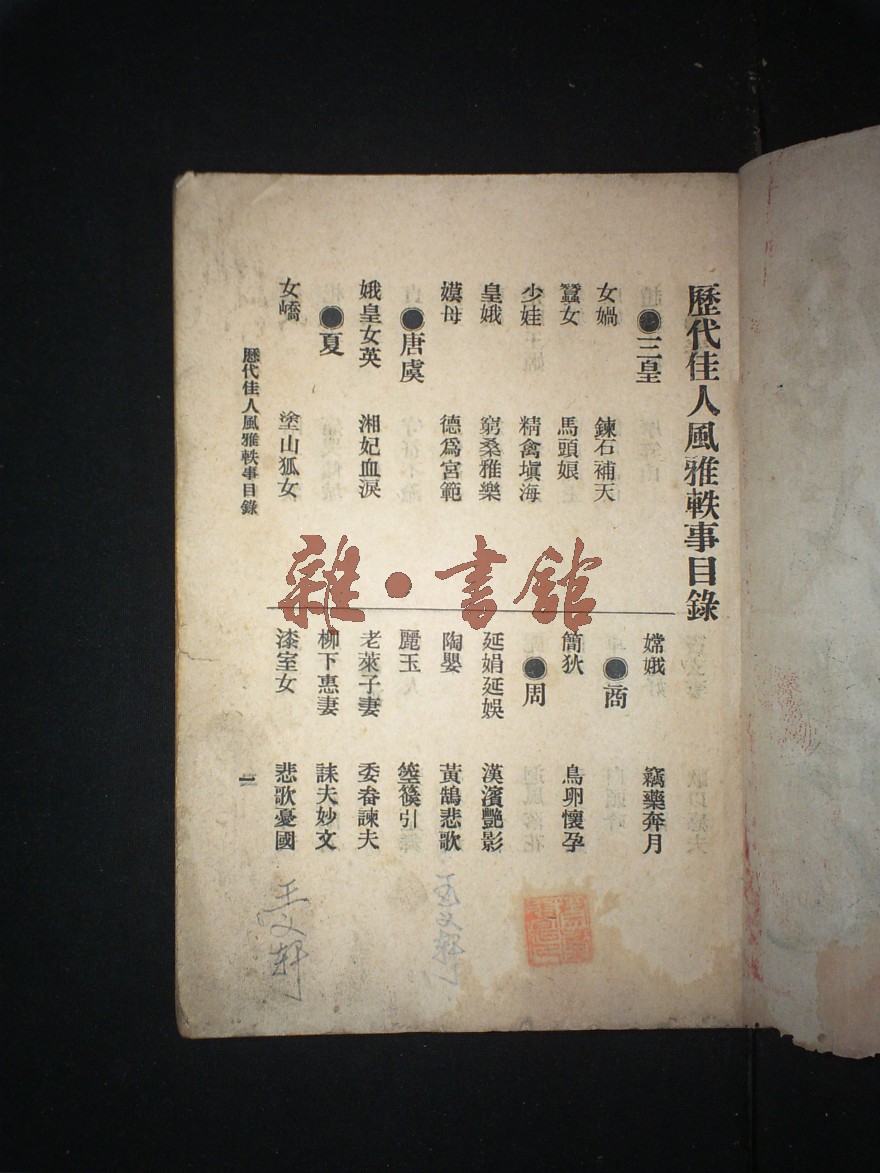 歷代佳人風雅軼事目錄
●三皇
女媧 鍊石補天
蠶女 馬頭娘
少娃 精禽塡海
皇娥 窮桑雅樂
嫫母 德爲宮範
●唐虞
娥皇女英 湘妃血淚
●夏
女嶠 塗山狐女
嫦娥 竊藥奔月
●商
簡狄 鳥卵懷孕
●周
延娟延娛 漢濱艷影
陶嬰 黃鵠悲歌
麗玉 箜篌引
老萊子妻 委畚諫夫
柳下惠妻 誄夫妙文
漆室女 悲歌憂國
歷代佳人風雅軼事目錄
雜·書館
王文軒
王文軒